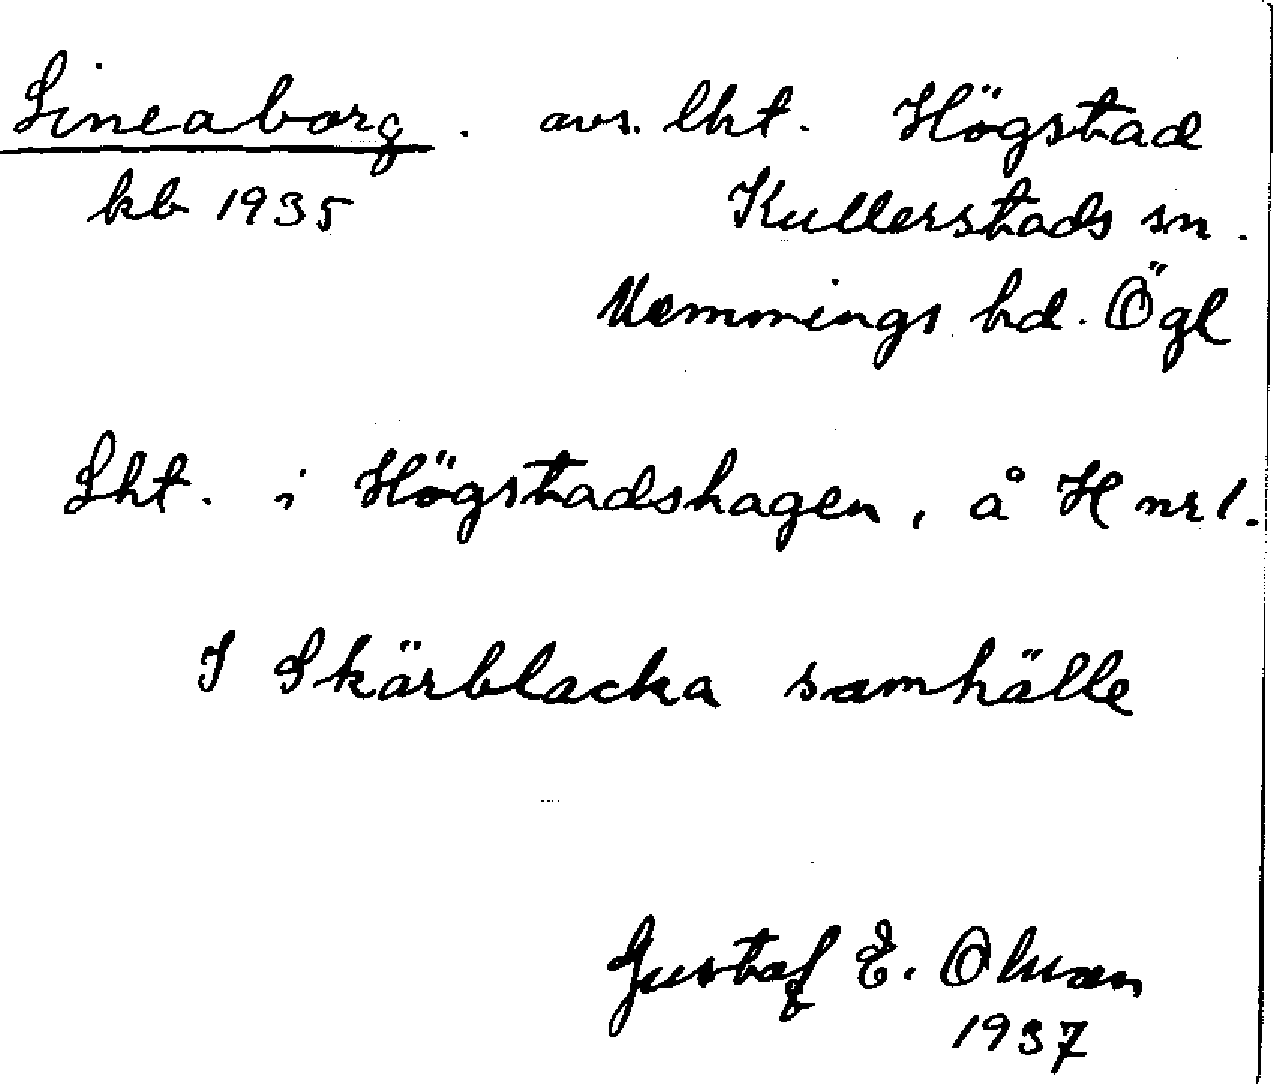 Lineaborg. avs. lht. Högstad
kb 1935 Kullerstads sn.
Memmings hd. Ögl
Lht. i Högstadshagen, å H nr 1.
I Skärblacka samhälle
Gustaf E. Olsson
1937